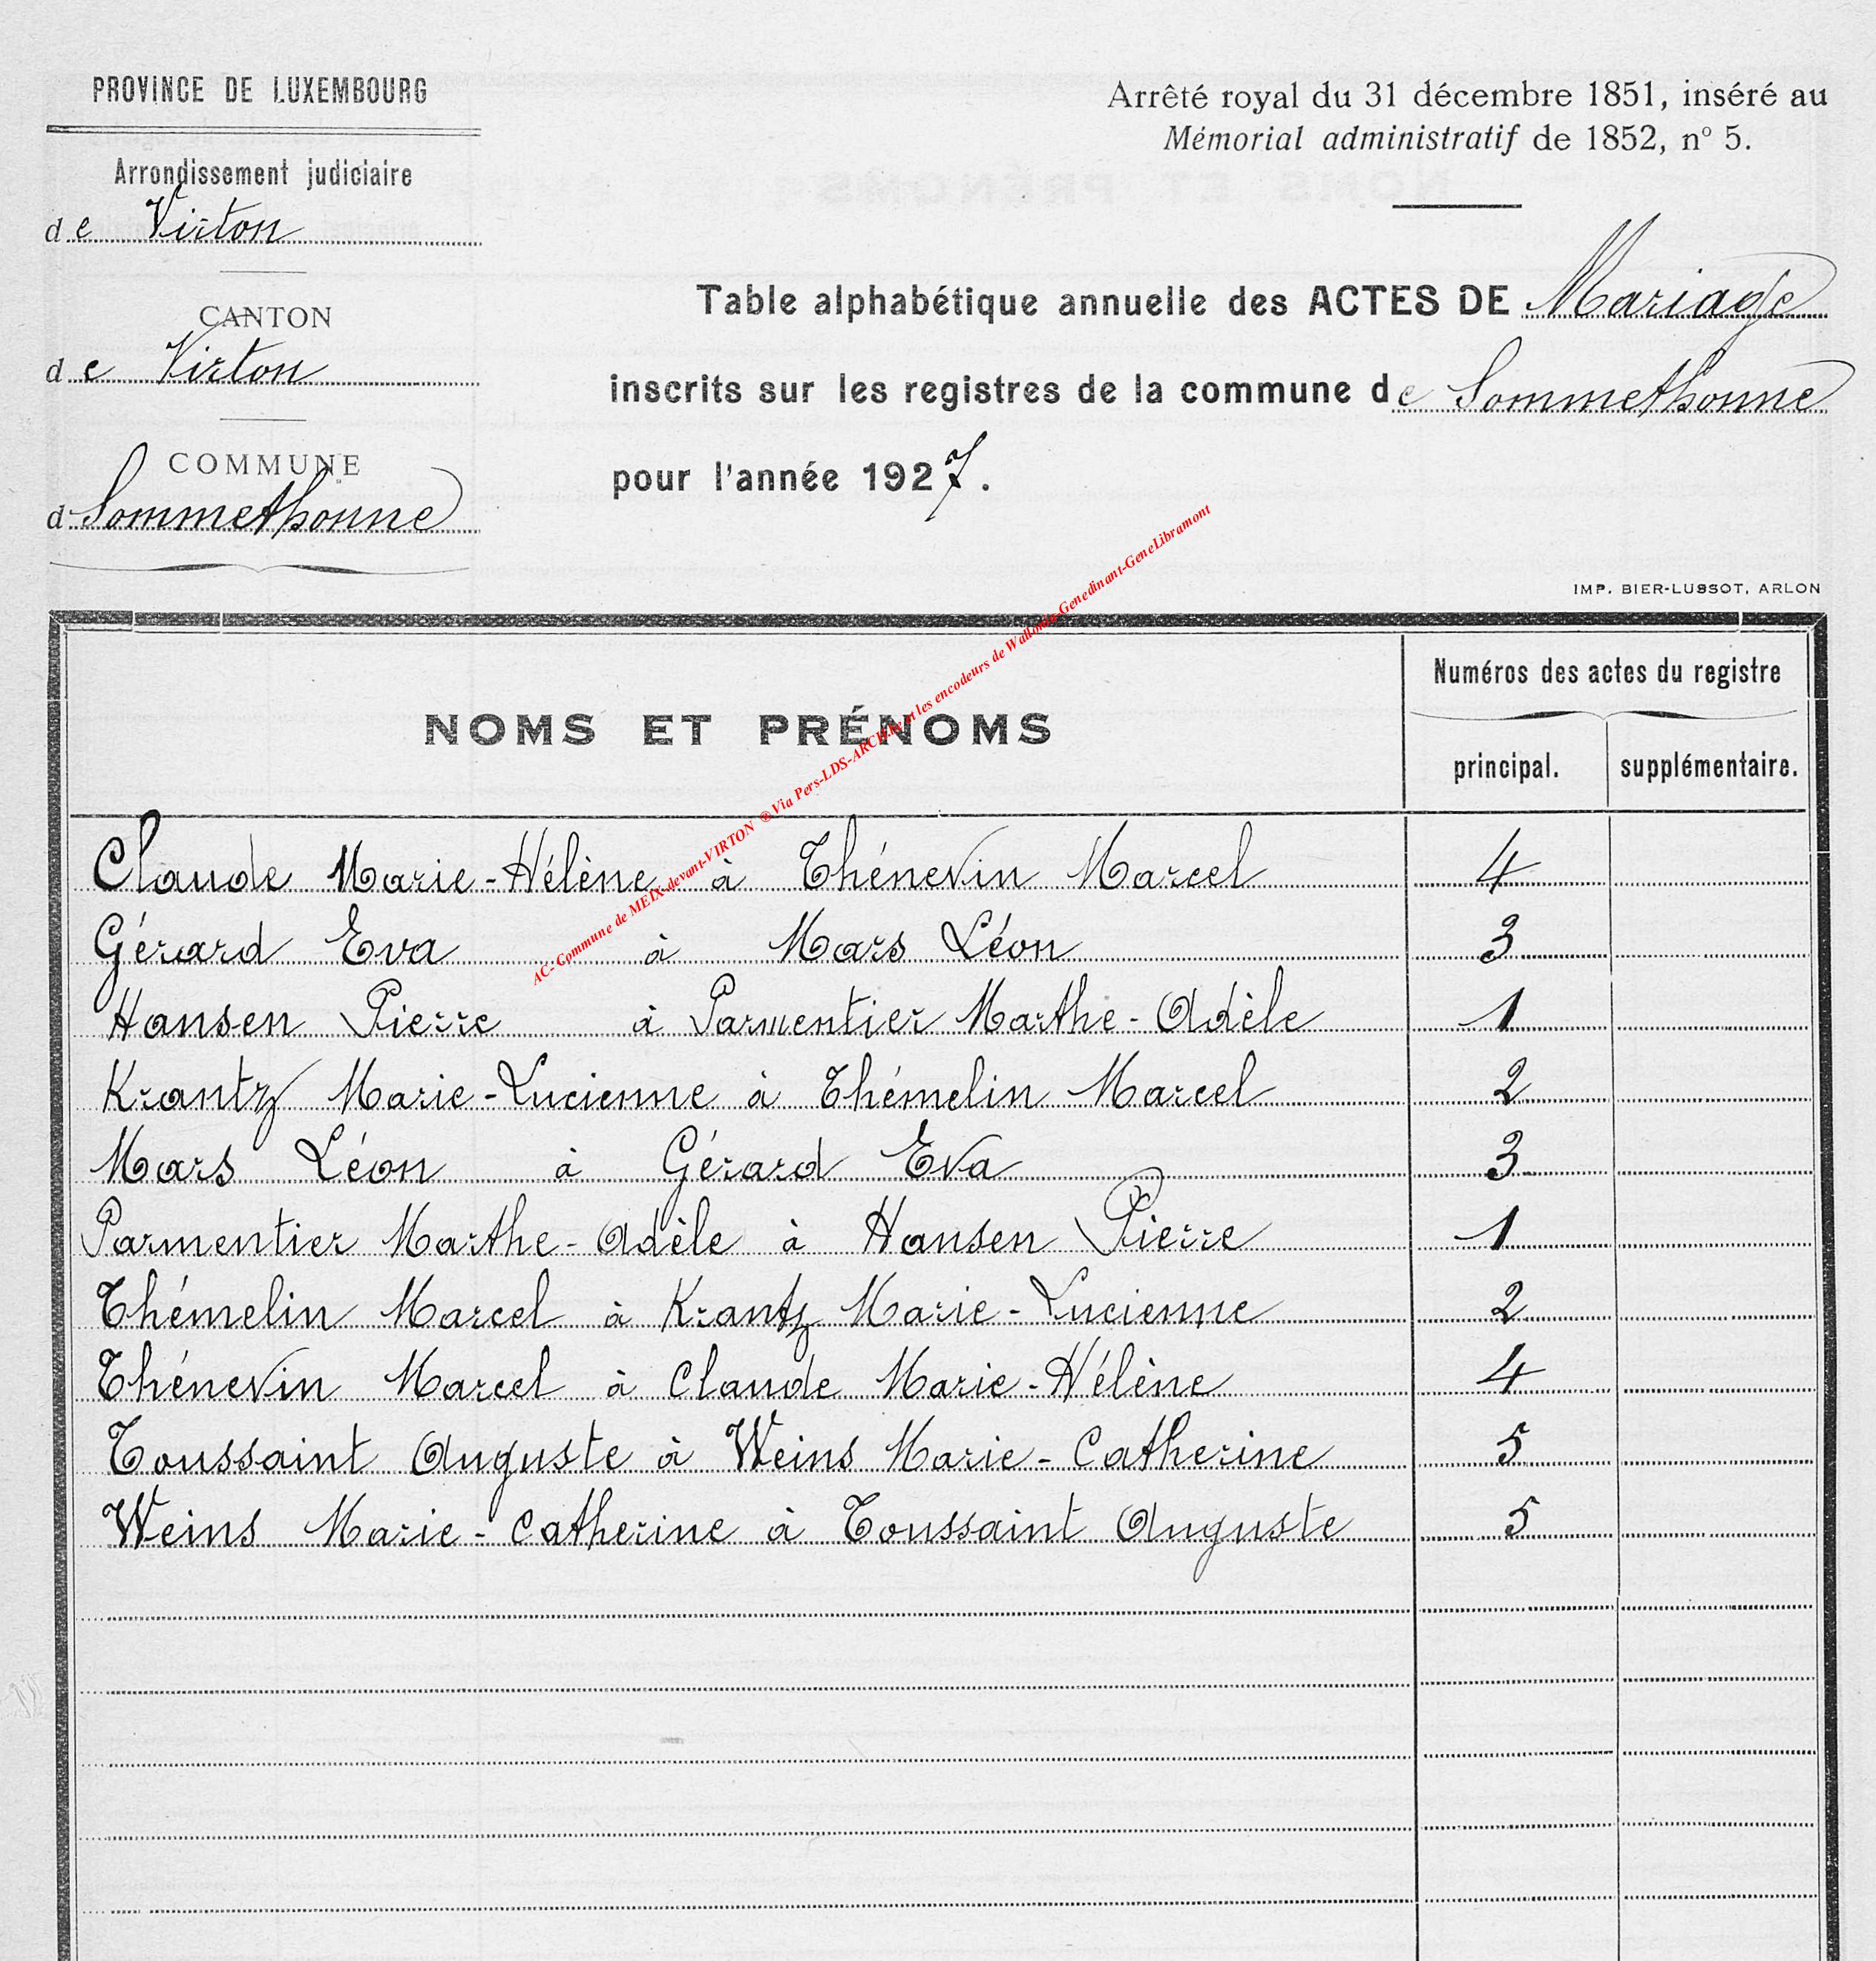 PROVINCE DE LUXEMBOURG
Arrondissement judiciaire
de Virton
CANTON
de Virton
COMMUNE
d Sommethonne
Arrêté royal du 31 décembre 1851, inséré au
Mémorial administratif de 1852, n° 5.
Table alphabétique annuelle des ACTES DE Mariage
inscrits sur les registres de la commune de Sommethonne
pour l'année 1927.
IMP. BIER-LUSSOT, ARLON
AC- Commune de MEIX-devant-VIRTON ® Via Pers-LDS-ARCH et les encodeurs de Wallonia-Genedinant-GeneLibramont
NOMS ET PRÉNOMS
Numéros des actes du registre
principal. supplémentaire.
Claude Marie-Hélène à Thénevin Marcel 4
Gérard Eva à Mars Léon 3
Hansen Pierre à Parmentier Marthe-Adèle 1
Krantz Marie-Lucienne à Thémelin Marcel 2
Mars Léon à Gérard Eva 3
Parmentier Marthe-Adèle à Hansen Pierre 1
Thémelin Marcel à Krantz Marie-Lucienne 2
Thénevin Marcel à Claude Marie-Hélène 4
Toussaint Auguste à Weins Marie-Catherine 5
Weins Marie-Catherine à Toussaint Auguste 5